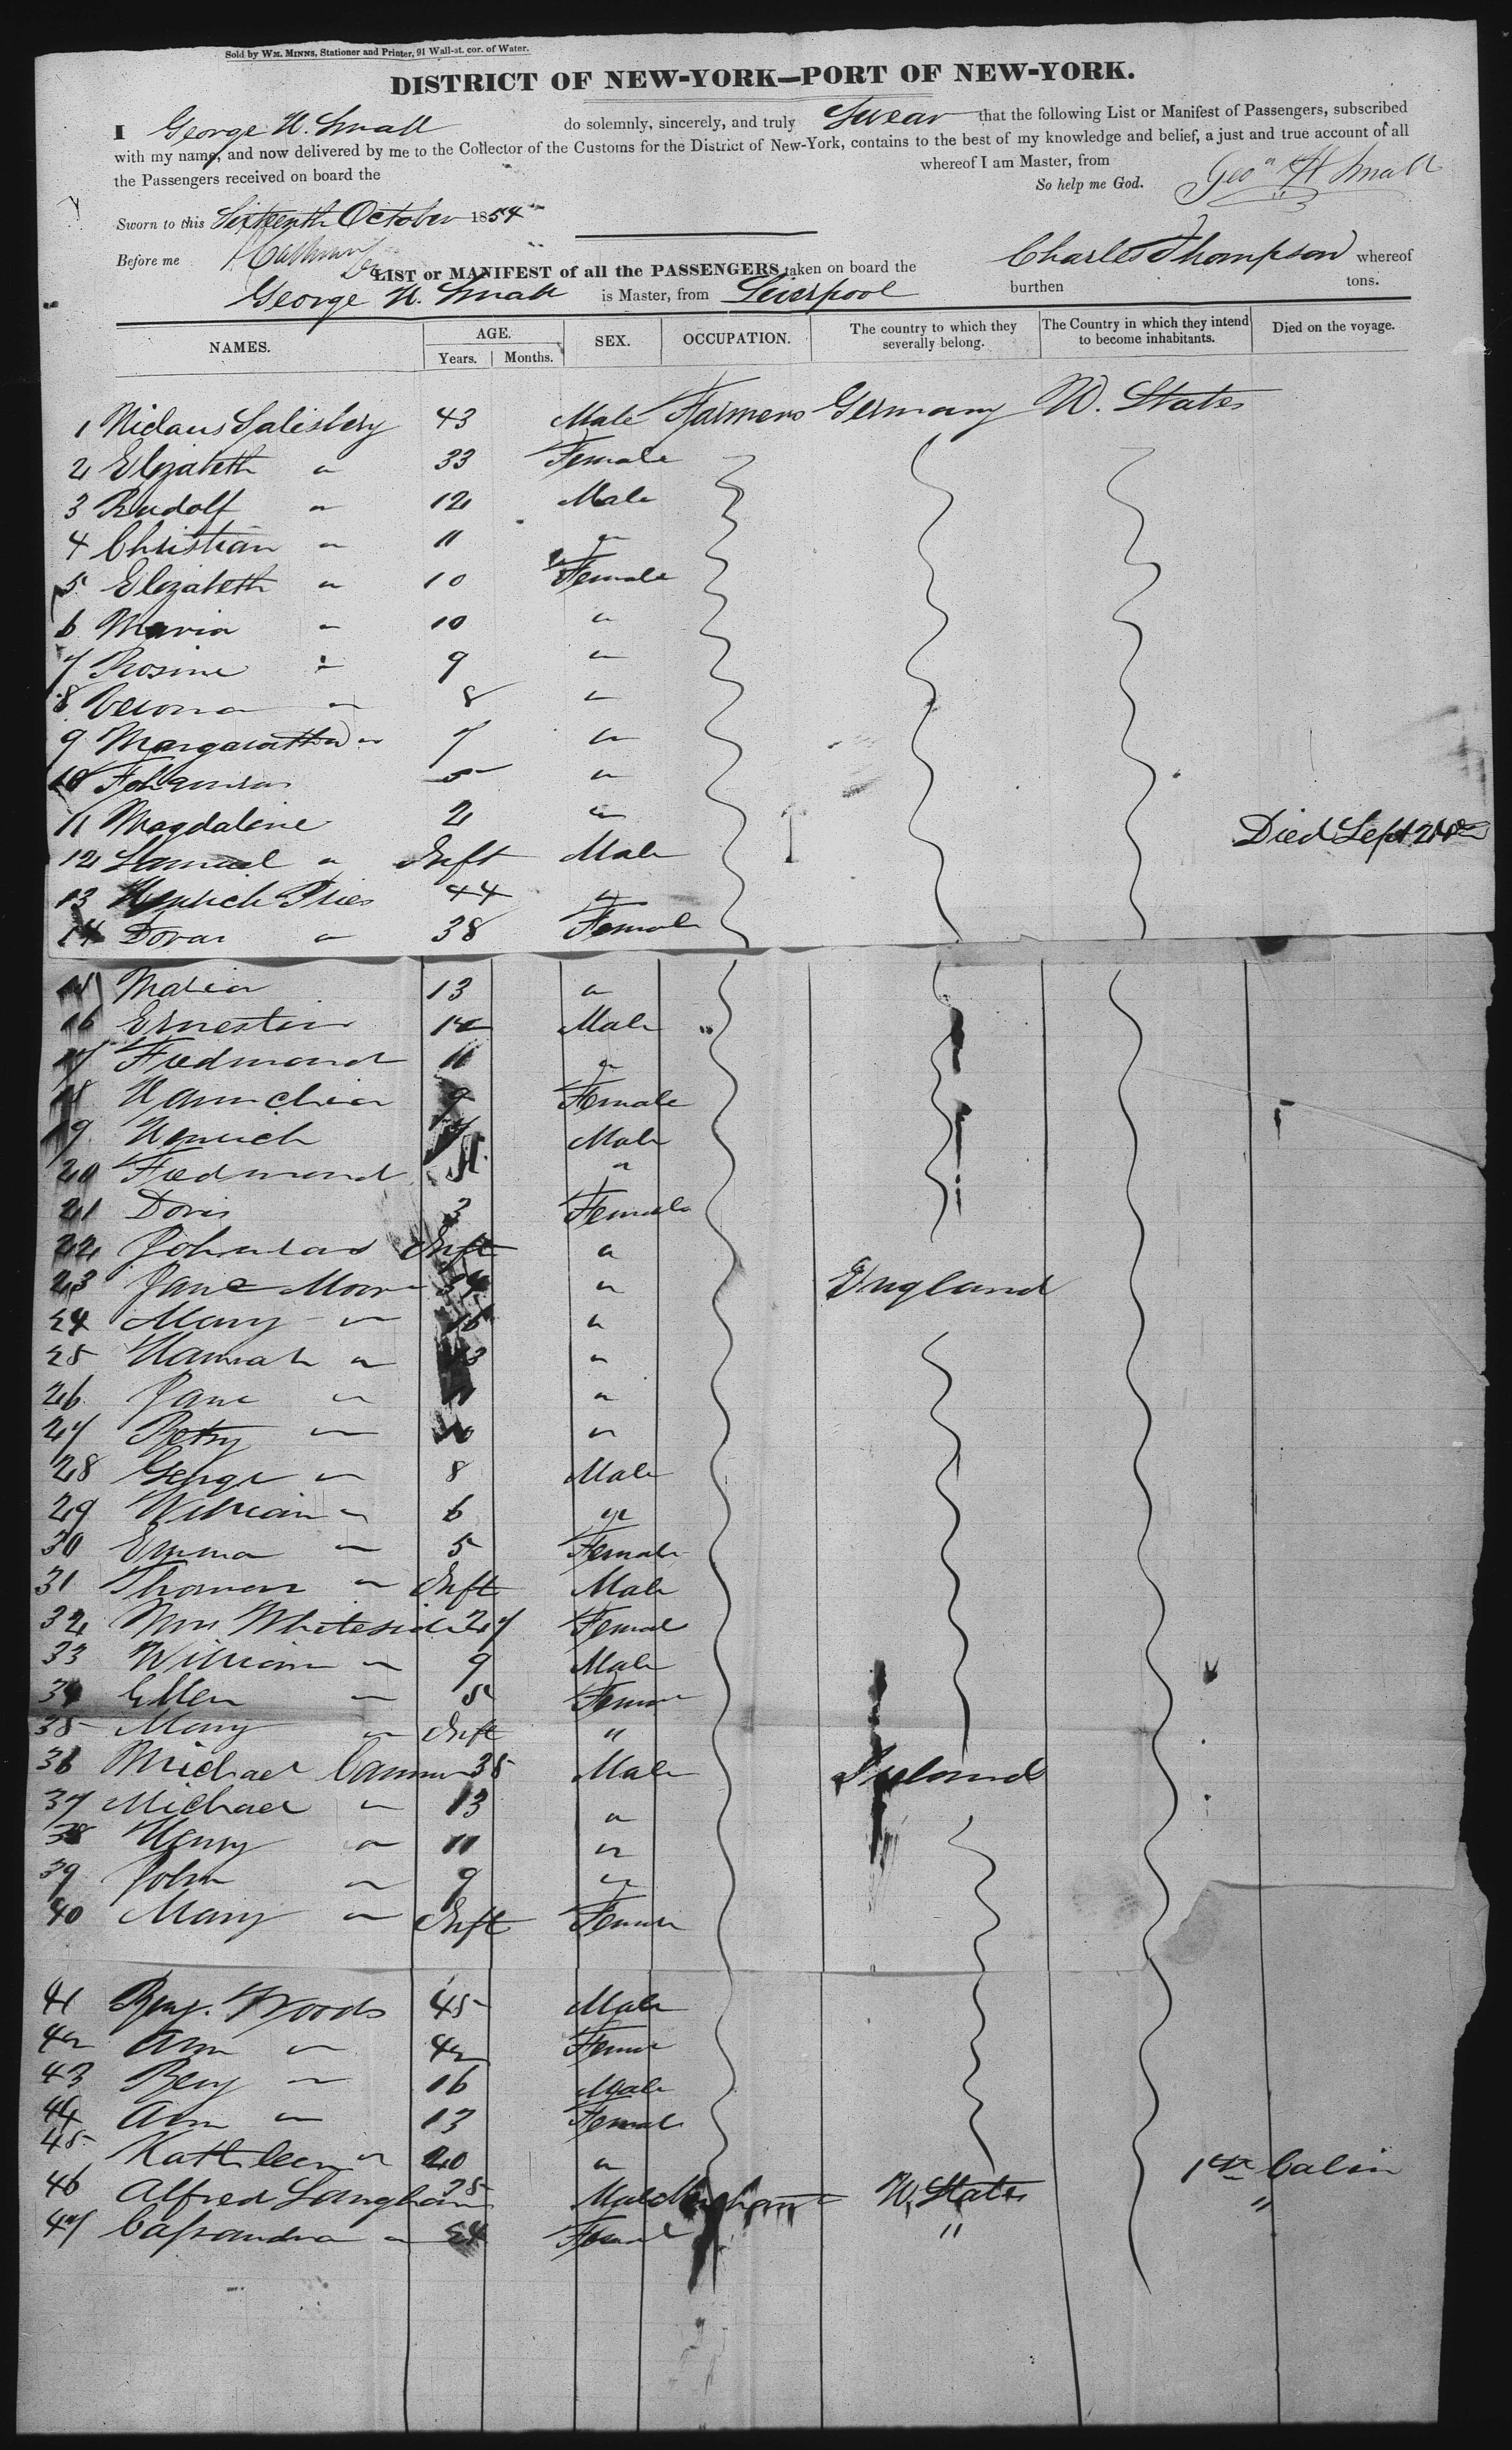 Sold by WM. MINNS, Stationer and Printer, 91 Wall-st. cor. of Water.
DISTRICT OF NEW-YORK—PORT OF NEW-YORK.
I George H. Small do solemnly, sincerely, and truly Swear that the following List or Manifest of Passengers, subscribed
with my name, and now delivered by me to the Collector of the Customs for the District of New-York, contains to the best of my knowledge and belief, a just and true account of all
the Passengers received on board the whereof I am Master, from
So help me God. Geo H Small
Sworn to this Sixteenth October 1854
Before me
LIST or MANIFEST of all the PASSENGERS taken on board the Charles Thompson whereof
George H. Small is Master, from Liverpool burthen tons.
NAMES. AGE. Years. Months. SEX. OCCUPATION. The country to which they severally belong. The Country in which they intend to become inhabitants. Died on the voyage.
1 Niclaus Salisbery 43 Male Farmers Germany U. States
2 Elizabeth " 33 Female
3 Rudolf " 12 Male
4 Christian " 11 "
5 Elizabeth " 10 Female
6 Maria " 10 "
7 Rosine " 9 "
8 Verona " 8 "
9 Margaretha " 7 "
10 5 "
11 Magdaline 2 " Died Sept 24th
12 Samuel " Inft Male
13 Henrich Pries 44 "
14 Doras " 38 Female
15 Maria 13 "
16 Ernestin 12 Male
17 Fredmond 11 "
18 9 Female
19 Henrich 7 Male
20 Fredmond "
21 Doris 3 Female
22 Johnead Inft "
23 Jane Moor 34 " England
24 Mary " 15 "
25 Hannah " 13 "
26 Jane " 11 "
27 Betsy " 10 "
28 George " 8 Male
29 William " 6 "
30 Emma " 5 Female
31 Thomas " Inft Male
32 Mrs Whiteside 27 Female
33 William " 9 Male
34 Ellen " 5 Female
35 Mary " Inft "
36 Michael 35 Male Ireland
37 Michael " 13 "
38 Henry " 11 "
39 John " 9 "
40 Mary " Inft Female
41 Benj. Woods 45 Male
42 Ann " 42 Female
43 Benj " 16 Male
44 Ann " 13 Female
45 Kathleen " 20 "
46 Alfred Langham 25 Male Merchant U, States 1st Cabin
47 Cassandra " 24 Female " "